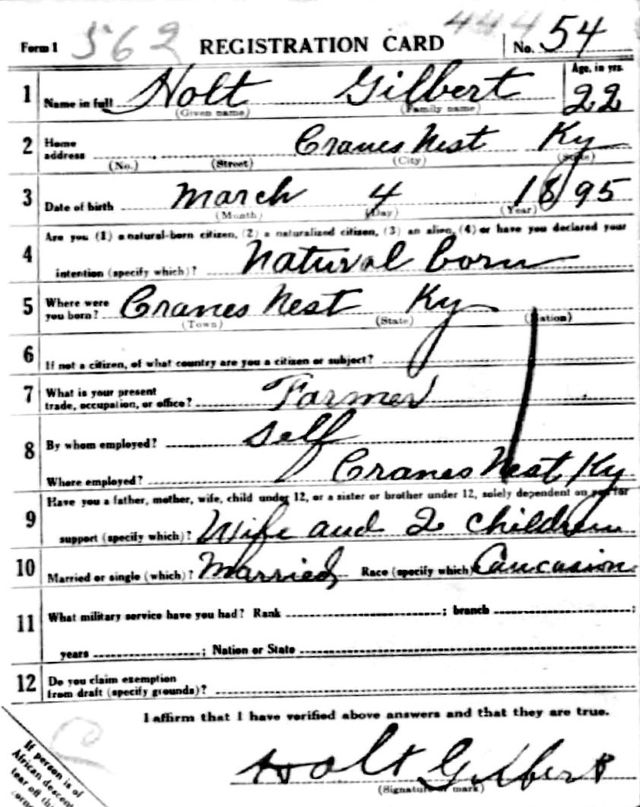 Form 1 562 REGISTRATION CARD No. 54
1 Name in full Holt Gilbert Age, in yrs. 22
(Given name) (Family name)
2 Home address Cranes Nest Ky
(No.) (Street) (City) (State)
3 Date of birth March 4 1895
(Month) (Day) (Year)
4 Are you (1) a natural-born citizen, (2) a naturalized citizen, (3) an alien, (4) or have you declared your
intention (specify which)? Natural born
5 Where were you born? Cranes Nest Ky
(Town) (State) (Nation)
6 If not a citizen, of what country are you a citizen or subject?
7 What is your present
trade, occupation, or office? Farmer
8 By whom employed? Self
Where employed? Cranes Nest Ky
9 Have you a father, mother, wife, child under 12, or a sister or brother under 12, solely dependent on you for
support (specify which)? Wife and 2 children
10 Married or single (which)? Married Race (specify which) Caucasion
11 What military service have you had? Rank ; branch ;
years ; Nation or State
12 Do you claim exemption
from draft (specify grounds)?
I affirm that I have verified above answers and that they are true.
Holt Gilbert
(Signature or mark)
If person is of
African descent
tear off this
corner